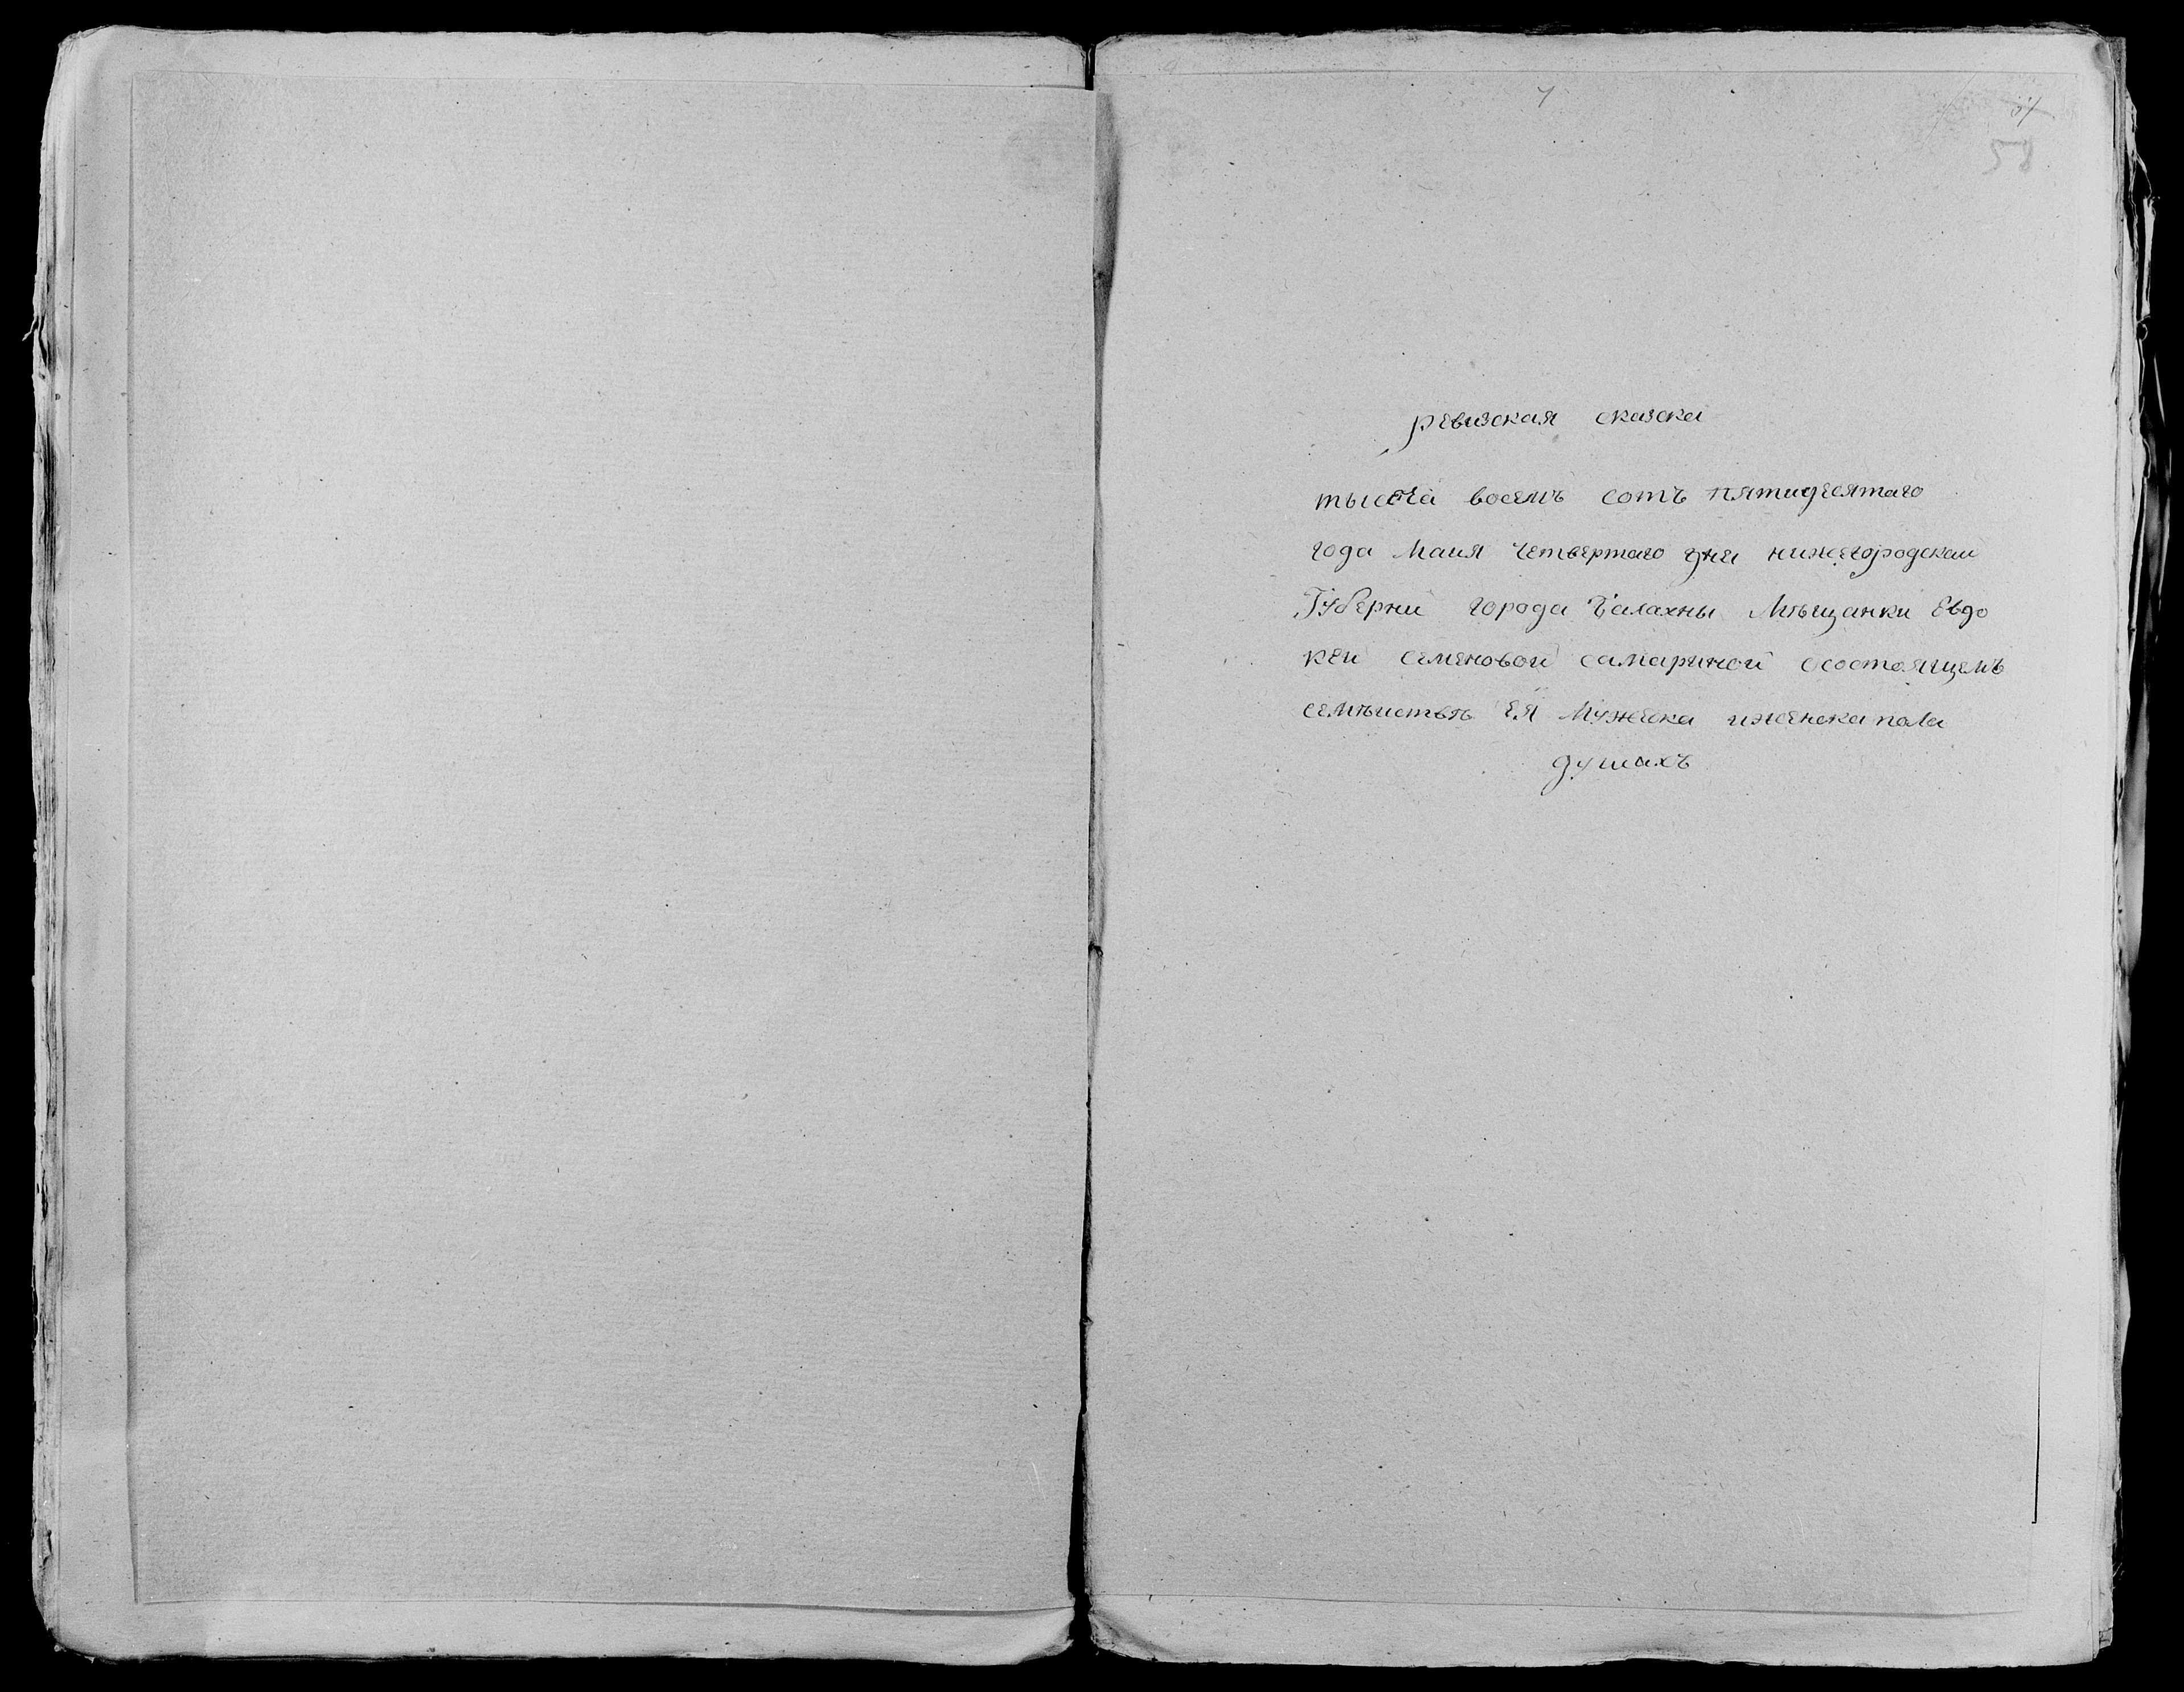 7
58
ревизская сказска
тысеча восемъ сотъ пятидесятаго
года Маия четвертаго дня нижегородскаи
Губерни города Балахны Мѣщанки Евдо
кеи семеновой самариной осостоящемъ
семѣиствѣ Ея Мужеска иженска пола
душахъ